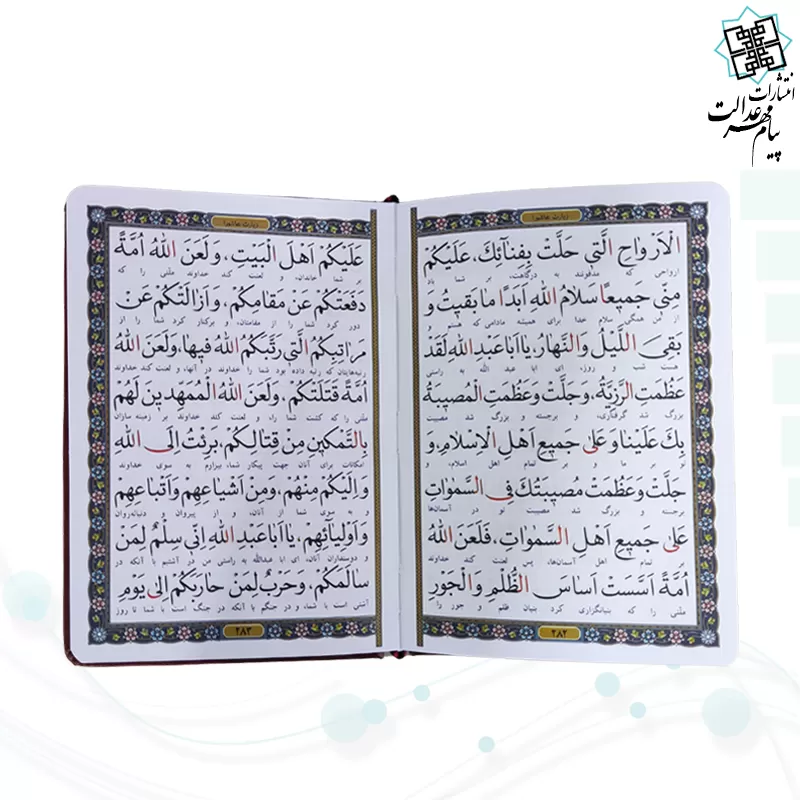 انتشارات
پیام مهر عدالت
زیارت عاشورا
الْاَرْواحِ الَّتي حَلَّتْ بِفِنائِكَ، عَلَيْكُمْ
ارواحی که مدفونند به درگاهت، بر شما باد
مِنّي جَميعًا سَلامُ اللهِ اَبَدًا ما بَقيتُ وَ
از من همگی سلام خدا برای همیشه مادامی که هستم و
بَقِیَ اللَّيْلُ وَالنَّهارُ، يا اَبا عَبدِ اللهِ لَقَدْ
هست شب و روز، ای ابا عبد الله به راستی
عَظُمَتِ الرَّزِيَّةُ، وَجَلَّتْ وَعَظُمَتِ الْمُصيبَةُ
بزرگ شد گرفتاری، و برجسته و بزرگ شد مصیبت
بِكَ عَلَيْنا وَ عَلىٰ جَميعِ اَهْلِ الْاِسْلامِ، وَ
تو بر ما و بر تمام اهل اسلام، و
جَلَّتْ وَ عَظُمَتْ مُصيبَتُكَ فِى السَّمٰواتِ
برجسته و بزرگ شد مصیبت تو در آسمان‌ها
عَلىٰ جَميعِ اَهْلِ السَّمٰواتِ، فَلَعَنَ اللهُ
بر تمام اهل آسمان‌ها، پس لعنت کند خداوند
اُمَّةً اَسَّسَتْ اَساسَ الظُّلْمِ وَالْجَوْرِ
ملتی را که بنیانگزاری کرد بنیان ظلم و جور را
۲۸۲
زیارت عاشورا
عَلَيْكُمْ اَهْلَ الْبَيْتِ، وَ لَعَنَ اللهُ اُمَّةً
بر شما خاندان، و لعنت کند خداوند ملتی را که
دَفَعَتْكُمْ عَنْ مَقامِكُمْ، وَ اَزالَتْكُمْ عَنْ
دور کرد شما را از مقامتان، و برکنار کرد شما را از
مَراتِبِكُمُ الَّتي رَتَّبَكُمُ اللهُ فيها، وَ لَعَنَ اللهُ
رتبه‌هایتان که رتبه داده بود شما را خداوند در آنها، و لعنت کند خداوند
اُمَّةً قَتَلَتْكُمْ، وَ لَعَنَ اللهُ الْمُمَهِّدينَ لَهُمْ
ملتی را که کشت شما را، و لعنت کند خداوند بر زمینه سازان
بِالتَّمْكينِ مِنْ قِتالِكُمْ، بَرِئْتُ اِلَى اللهِ
امکانات برای آنان جهت پیکار شما، بیزارم به سوی خداوند
وَ اِلَيْكُمْ مِنْهُمْ، وَ مِنْ اَشْياعِهِمْ وَ اَتْباعِهِمْ
و به سوی شما از آنان، و از پیروان و دنباله‌روان
وَ اَوْلِيآئِهِمْ، يا اَبا عَبدِ اللهِ اِنّي سِلْمٌ لِمَنْ
و دوستداران آنان، ای ابا عبدالله به راستی من در آشتیم با آنکه در
سالَمَكُمْ، وَ حَرْبٌ لِمَنْ حارَبَكُمْ اِلىٰ يَوْمِ
آشتی است با شما، و در جنگم با آنکه در جنگ است با شما تا روز
۲۸۳